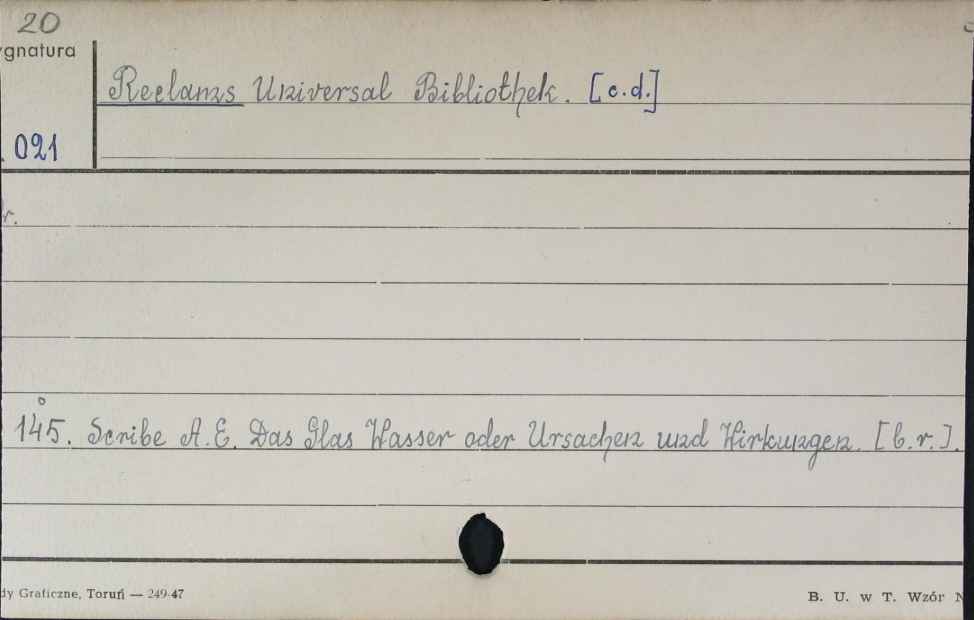 20
ygnatura
Reclams Universal Bibliothek. [c.d.]
021
r.
145. Scribe A.E. Das Glas Wasser oder Ursachen und Wirkungen. [b.r.].
dy Graficzne, Toruń — 249-47
B. U. w T. Wzór N